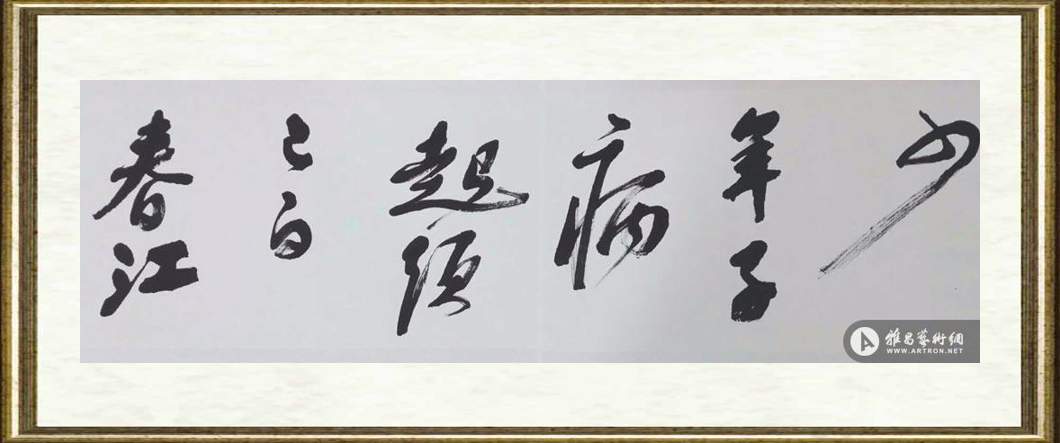 少
年子
病
起須
已白
春江
雅昌藝術網
WWW.ARTRON.NET